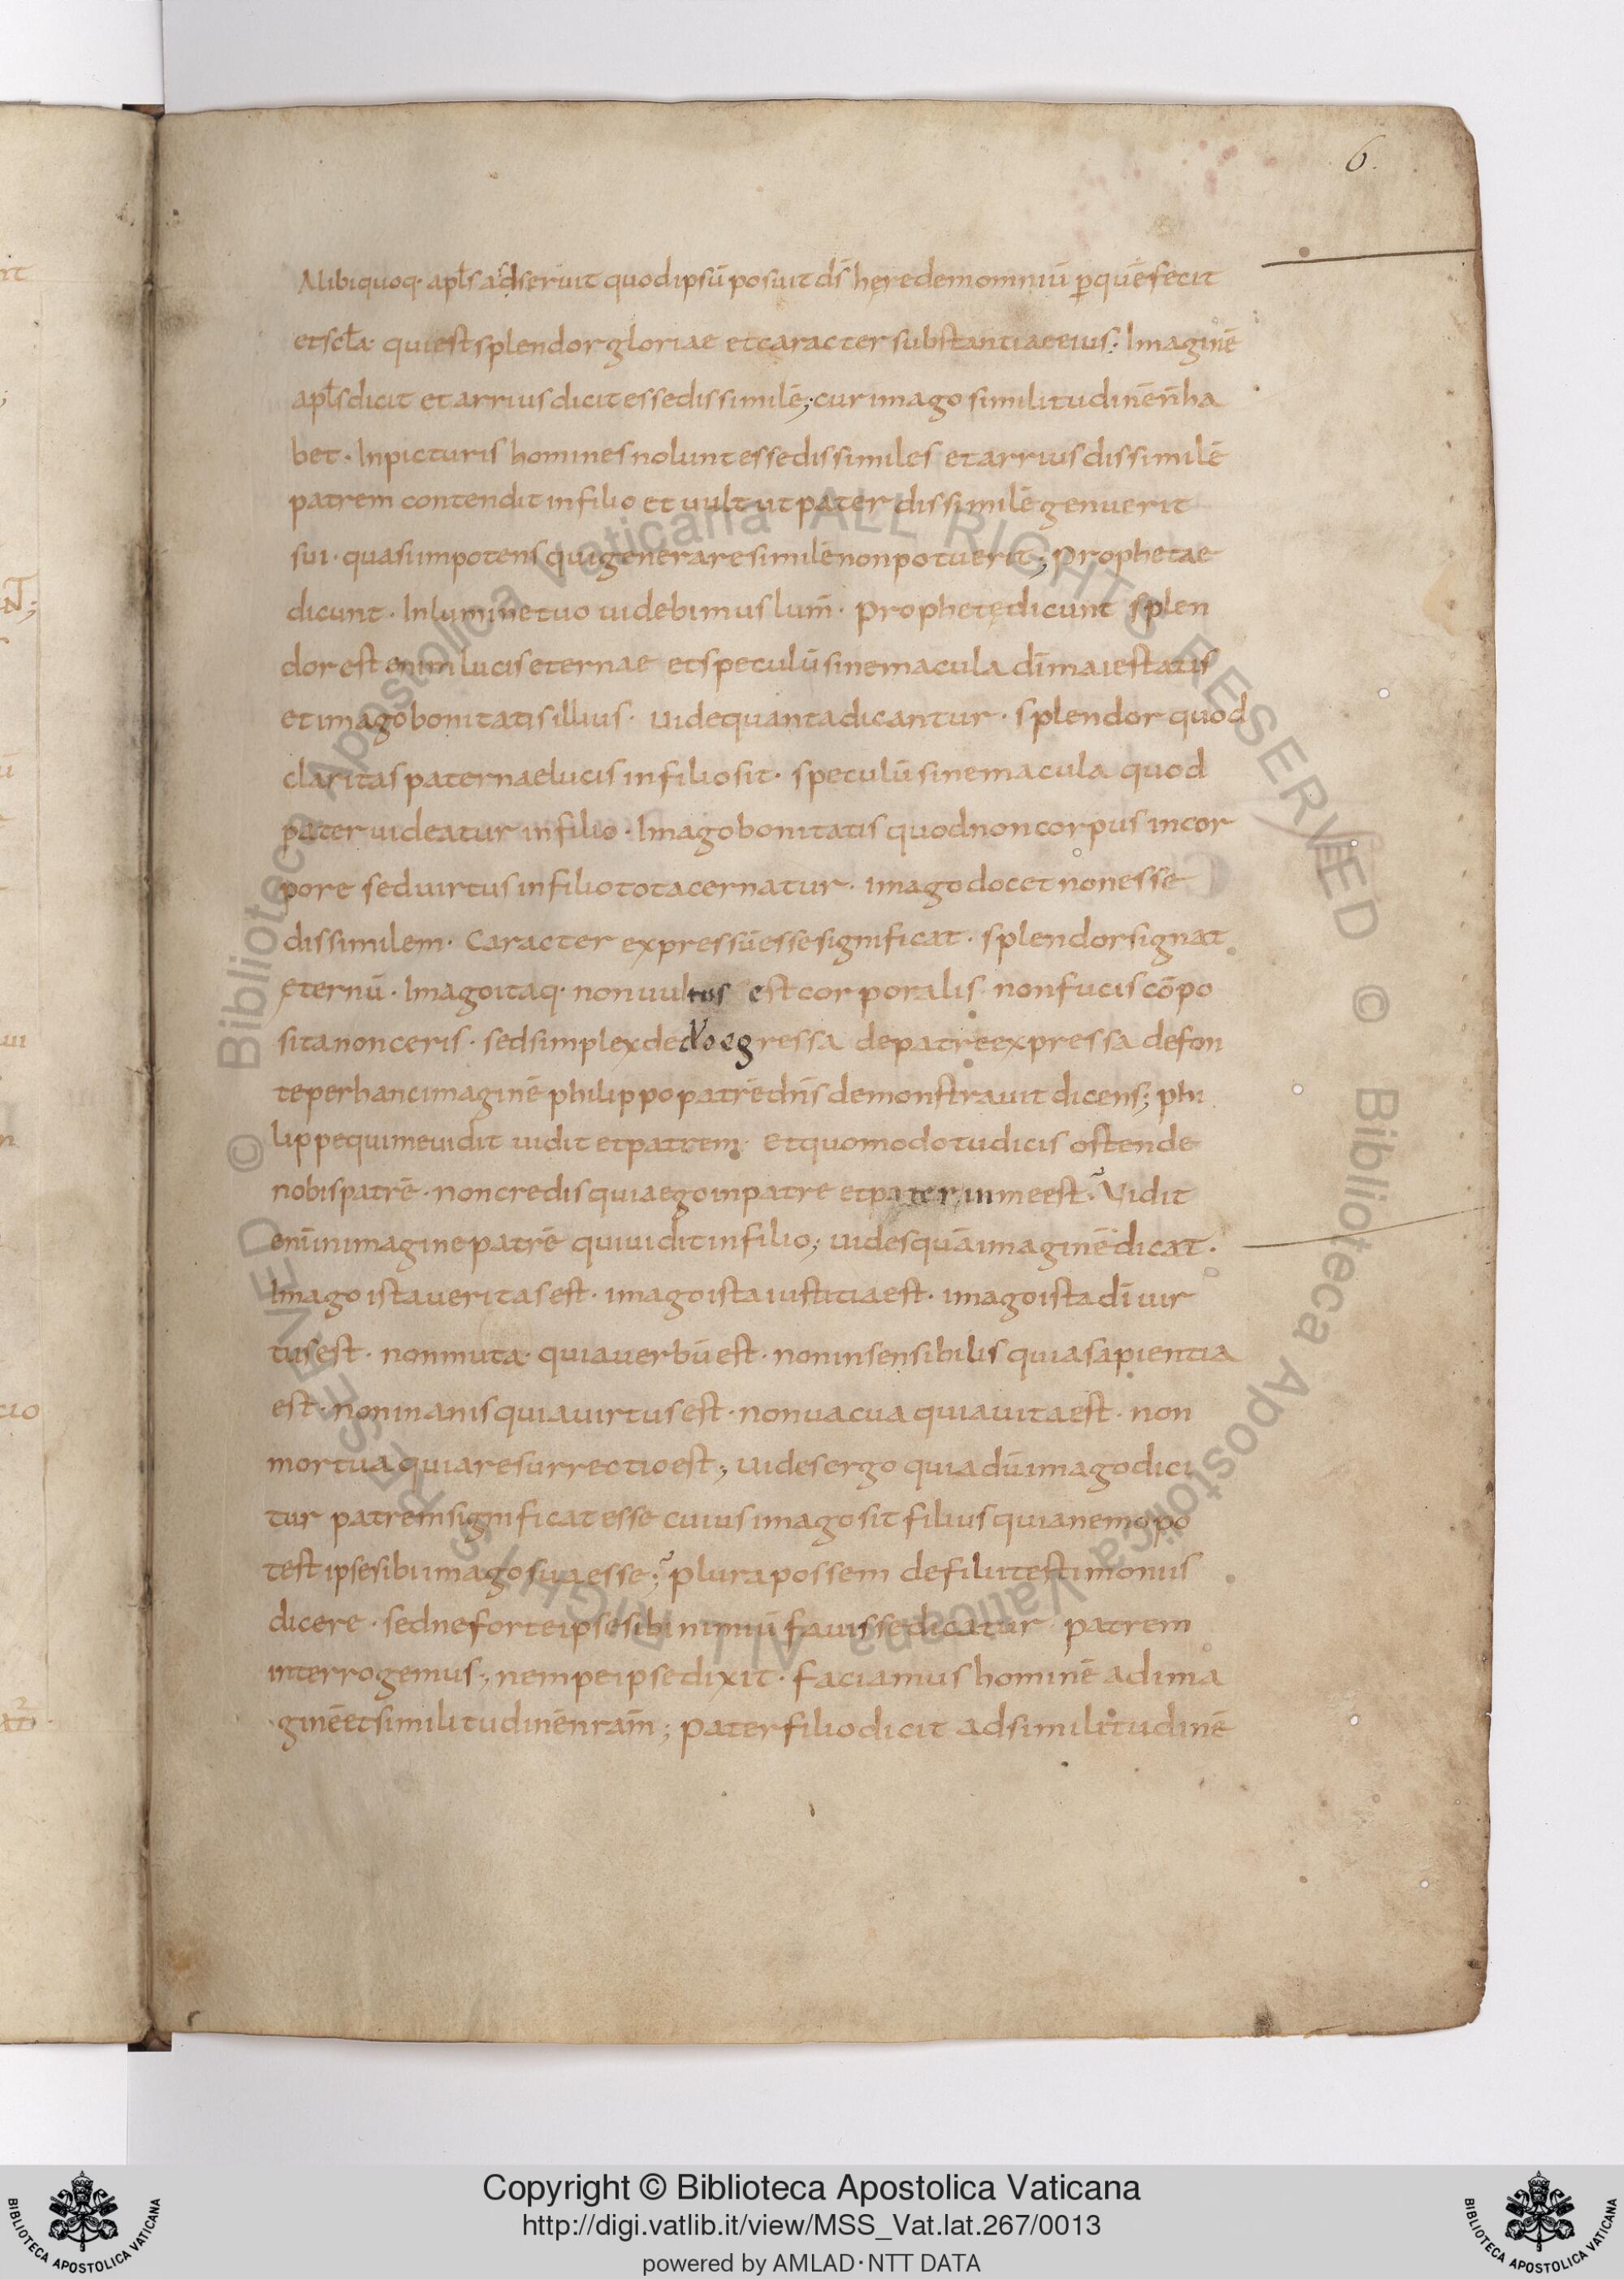 6.
Alibi quoq· apl̄s adseruit quod ipsū posuit ds̄ hęredem omniū ꝑ quē fecit
et scl̄a· qui est splendor gloriae et caracter substantiae eius· Imaginē
apl̄s dicit et arrius dicit esse dissimilē; cur imago similitudinē n̄ ha
bet· In picturis homines nolunt esse dissimiles et arrius dissimilē
patrem contendit in filio et uult ut pater dissimilē genuerit
sui· quasi impotens qui generare similē non potuerit; Prophetae
dicunt· In lumine tuo uidebimus lum̄· Prophetę dicunt splen
dor est enim lucis eternae et speculū sine macula dī maiestatis
et imago bonitatis illius· uide quanta dicantur· splendor quod
claritas paternae lucis in filio sit· speculū sine macula quod
pater uideatur in filio· Imago bonitatis quod non corpus in cor
pore sed uirtus in filio tota cernatur· imago docet non esse
dissimilem· Caracter expressū esse significat· splendor signat
ęternū· Imago itaq· non uultus est corporalis non fucis cōpo
sita non ceris· sed simplex de dō egressa de patre expressa de fon
te per hanc imaginē philippo patrē dn̄s demonstrauit dicens; phi
lippe qui me uidit uidit et patrem· Et quomodo tu dicis ostende
nobis patrē· non credis quia ego in patre et pater in me est· Vidit
enī in imagine patrē qui uidit in filio; uides quā imaginē dicat·
Imago ista ueritas est· imago ista iustitia est· imago ista dī uir
tus est· non muta· quia uerbū est· non insensibilis quia sapientia
est· non inanis quia uirtus est· non uacua quia uita est· non
mortua quia resurrectio est; uides ergo quia dū imago dici
tur patrem significat esse cuius imago sit filius quia nemo po
test ipse sibi imago sua esse; plura possem de filii testimoniis
dicere· sed ne forte ipse sibi nimiū fauisse dicatur patrem
interrogemus; nempe ipse dixit· faciamus hominē ad ima
ginē et similitudinē nr̄am; pater filio dicit ad similitudinē
© Biblioteca Apostolica Vaticana ALL RIGHTS RESERVED
© Biblioteca Apostolica Vaticana ALL RIGHTS RESERVED
BIBLIOTECA APOSTOLICA VATICANA
Copyright © Biblioteca Apostolica Vaticana
http://digi.vatlib.it/view/MSS_Vat.lat.267/0013
powered by AMLAD·NTT DATA
BIBLIOTECA APOSTOLICA VATICANA